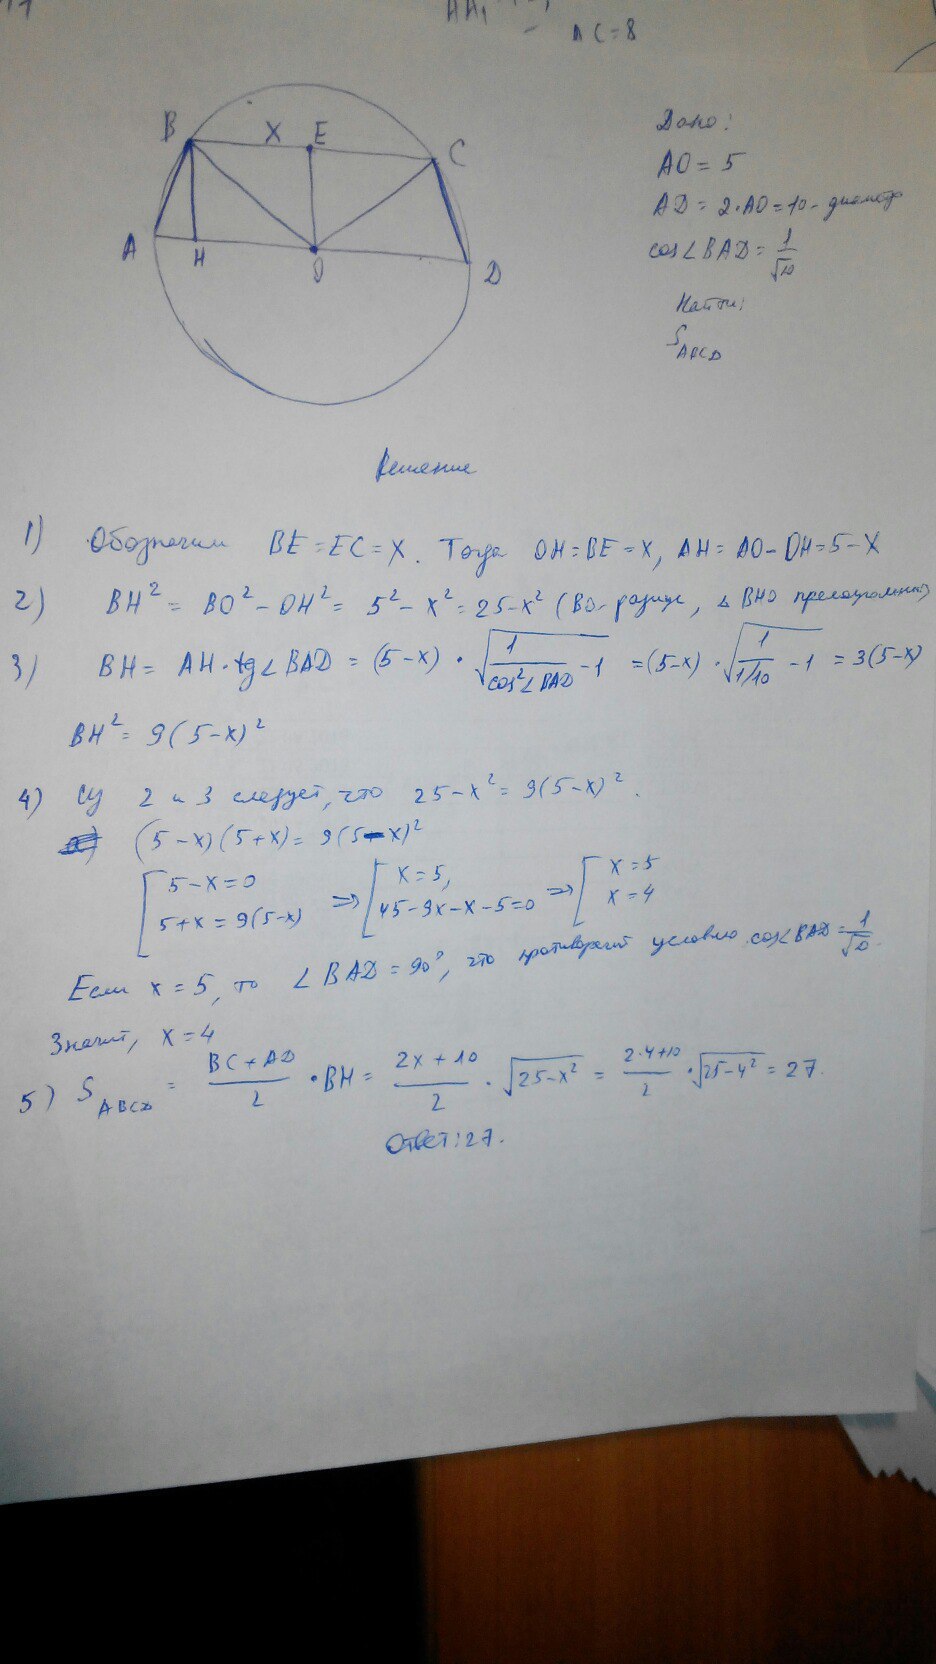 11
AA₁
AC = 8
B
X
E
C
A
H
O
D
Дано:
AO = 5
AD = 2·AO = 10 - диаметр
cos∠BAD = 1/√10
Найти:
S_ABCD
Решение
1) Обозначим BE = EC = X. Тогда OH = BE = X, AH = AO - OH = 5 - X
2) BH² = BO² - OH² = 5² - x² = 25 - x² (BO - радиус, △BHO прямоугольный)
3) BH = AH · tg∠BAD = (5-x) · √(1/cos²∠BAD - 1) = (5-x) · √(1/(1/10) - 1) = 3(5-x)
BH² = 9(5-x)²
4) Из 2 и 3 следует, что 25 - x² = 9(5-x)².
(5-x)(5+x) = 9(5-x)²
[5-x=0 ⇒ [x=5, ⇒ [x=5
5+x=9(5-x) 45-9x-x-5=0 x=4
Если x = 5, то ∠BAD = 90°, что противоречит условию cos∠BAD = 1/√10.
Значит, x = 4
5) S_ABCD = (BC + AD)/2 · BH = (2x + 10)/2 · √(25-x²) = (2·4+10)/2 · √(25-4²) = 27.
Ответ: 27.